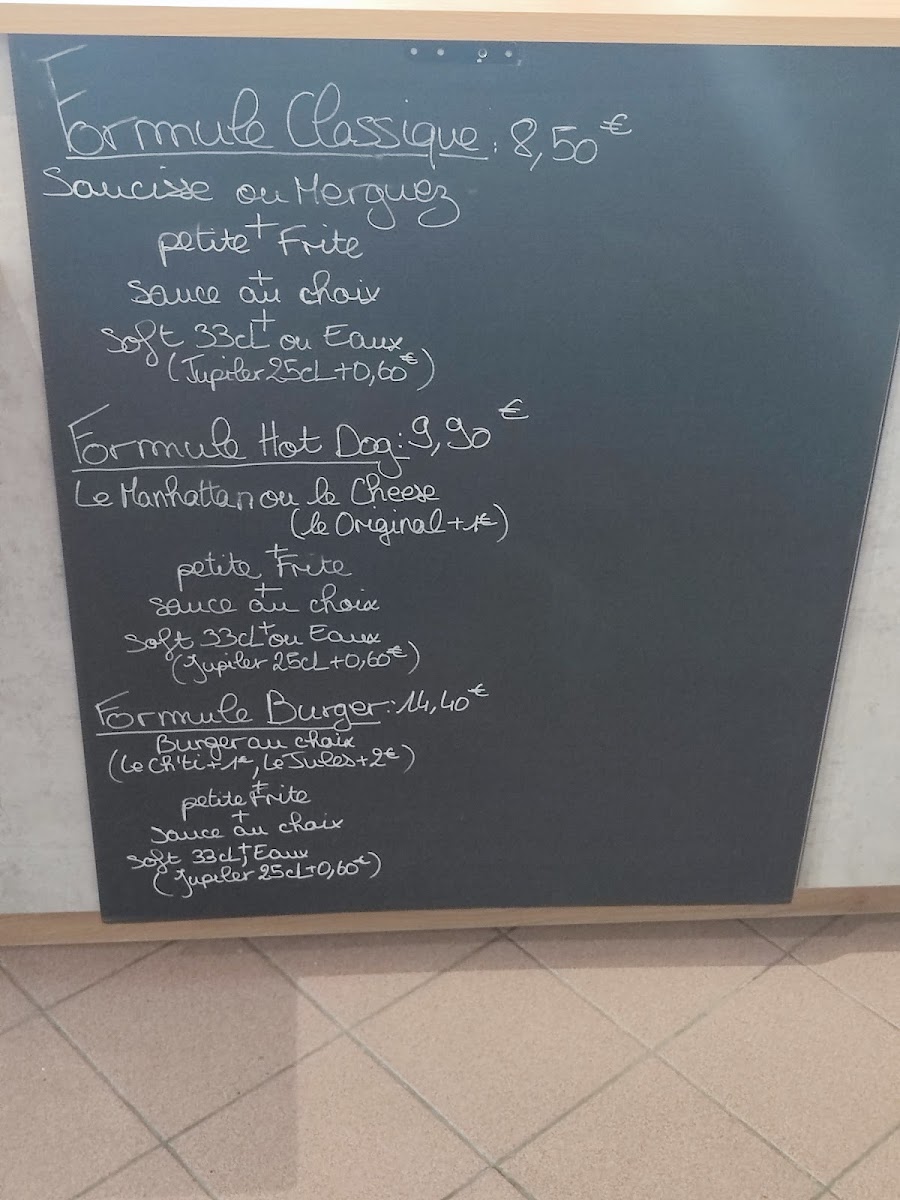 Formule Classique : 8,50€
Saucisse ou Merguez
+
petite Frite
+
sauce au choix
+
Soft 33cL ou Eaux
(Jupiler 25cL+0,60€)
Formule Hot Dog : 9,90€
Le Manhattan ou le Cheese
(le Original+1€)
+
petite Frite
+
sauce au choix
+
Soft 33cL ou Eaux
(Jupiler 25cL+0,60€)
Formule Burger : 14,40€
Burger au choix
(Le Ch'ti+1€, Le Jules+2€)
+
petite Frite
+
sauce au choix
+
Soft 33cL, Eaux
(Jupiler 25cL+0,60€)